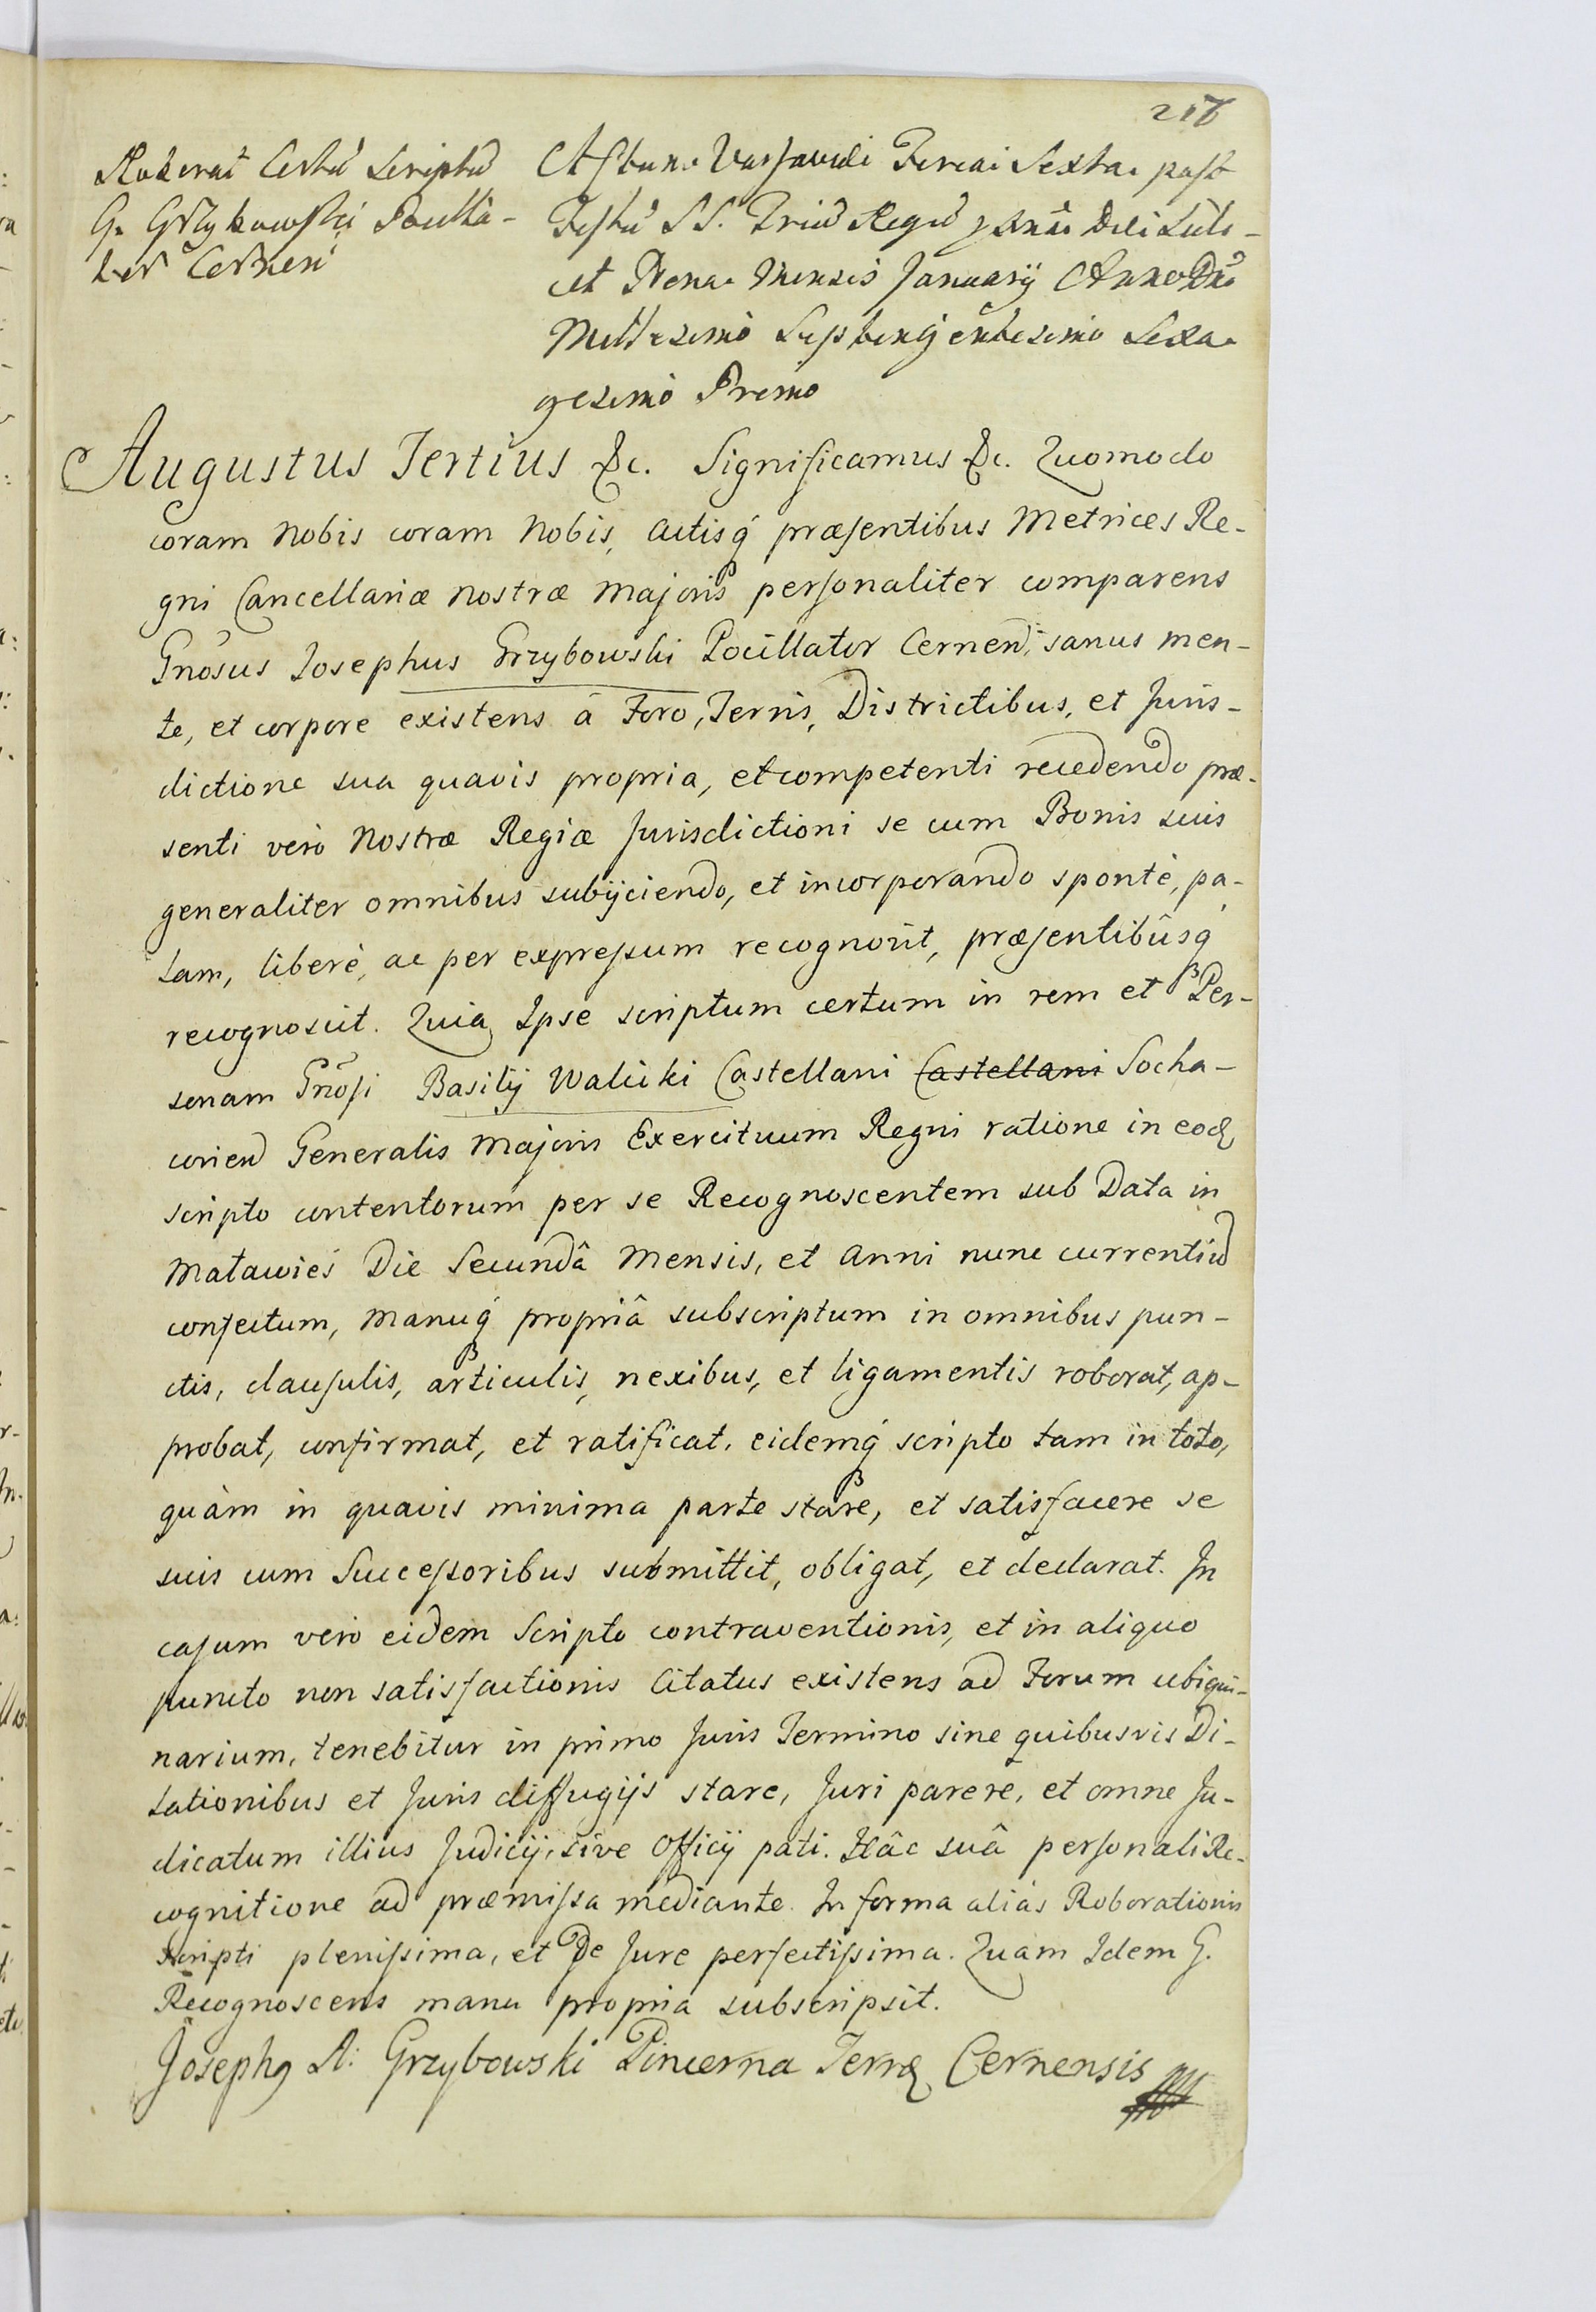 217
Roborat Certũ Scriptũ
G. Grzybowski Pocilla-
tor Cernen
Actum Varsaviæ Feria Sexta post
Festũ SS. Triũ Regũ
et Nona Mensis Januarij Anno Dni
Millesimo Septingentesimo Sexa-
gesimo Primo
Augustus Tertius &c. Significamus &c. Quomodo
coram Nobis coram Nobis, Actisq́ præsentibus Metrices Re-
gni Cancellariæ Nostræ Majoris personaliter comparens
Gnõsus Josephus Grzybowski Pocillator Cernen. sanus men-
te, et corpore existens à Foro, Terris, Districtibus, et Juris-
dictione sua quavis propria, et competenti recedendo præ-
senti verò Nostræ Regiæ Jurisdictioni se cum Bonis suis
generaliter omnibus subijciendo, et incorporando spontè, pa-
lam, liberè, ac per expressum recognovit, præsentibûsq́
recognoscit. Quia Ipse scriptum certum in rem et Per-
sonam Gnõsi Basilij Walicki Castellani Castellani Socha-
covien Generalis Majoris Exercituum Regni ratione in eoq
scripto contentorum per se Recognoscentem sub Data in
Matawieś Die Secundâ Mensis, et Anni nunc currentiũ
confectum, Manuq́ propriâ subscriptum in omnibus pun-
ctis, clausulis, articulis, nexibus, et ligamentis roborat, ap-
probat, confirmat, et ratificat. eidemq́ scripto tam in toto,
quàm in quavis minima parte stare, et satisfacere se
suis cum Successoribus submittit, obligat, et declarat. In
casum verò eidem Scripto contraventionis, et in aliquo
puncto non satisfactionis Citatus existens ad Forum ubiqui-
narium, tenebitur in primo Juris Termino sine quibusvis Di-
lationibus et Juris diffugijs stare, Juri parere, et omne Ju-
dicatum illius Judicij, sive Officij pati. Hâc suâ personali Re-
cognitione ad præmissa mediante. In forma aliàs Roborationis
scripti plenissima, et De Jure perfectissima. Quam Idem G.
Recognoscens manu propria subscripsit.
Josephq A: Grzybowski Pincerna Terrę Cernensis